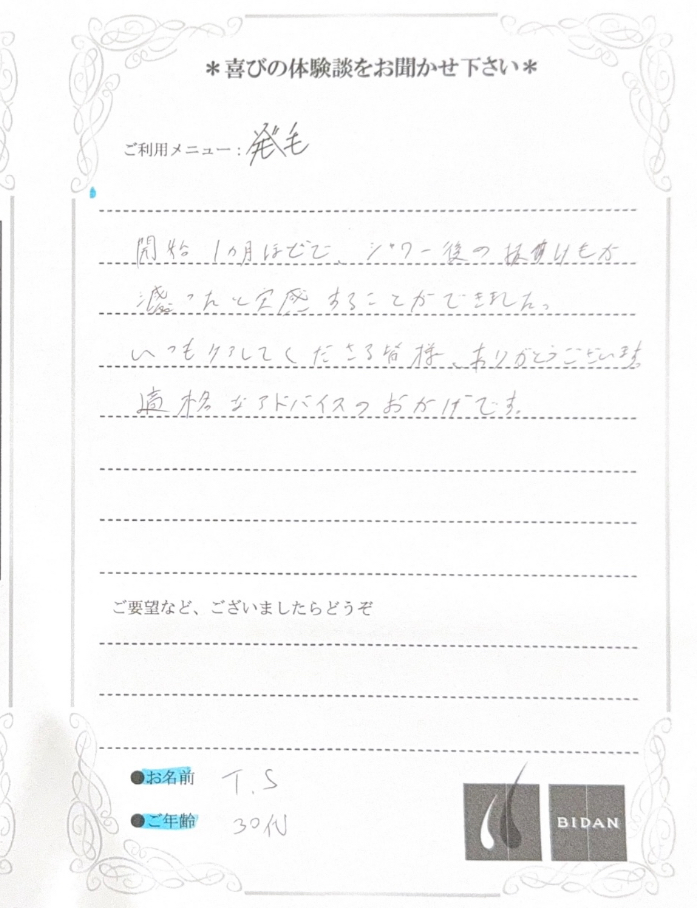 ＊喜びの体験談をお聞かせ下さい＊
ご利用メニュー：発毛
開始1カ月ほどで、シャワー後の抜け毛が
減ったと実感することができました。
いつもケアしてくださる皆様、ありがとうございます
適格なアドバイスのおかげです。
ご要望など、ございましたらどうぞ
●お名前 T.S
●ご年齢 30代
BIDAN